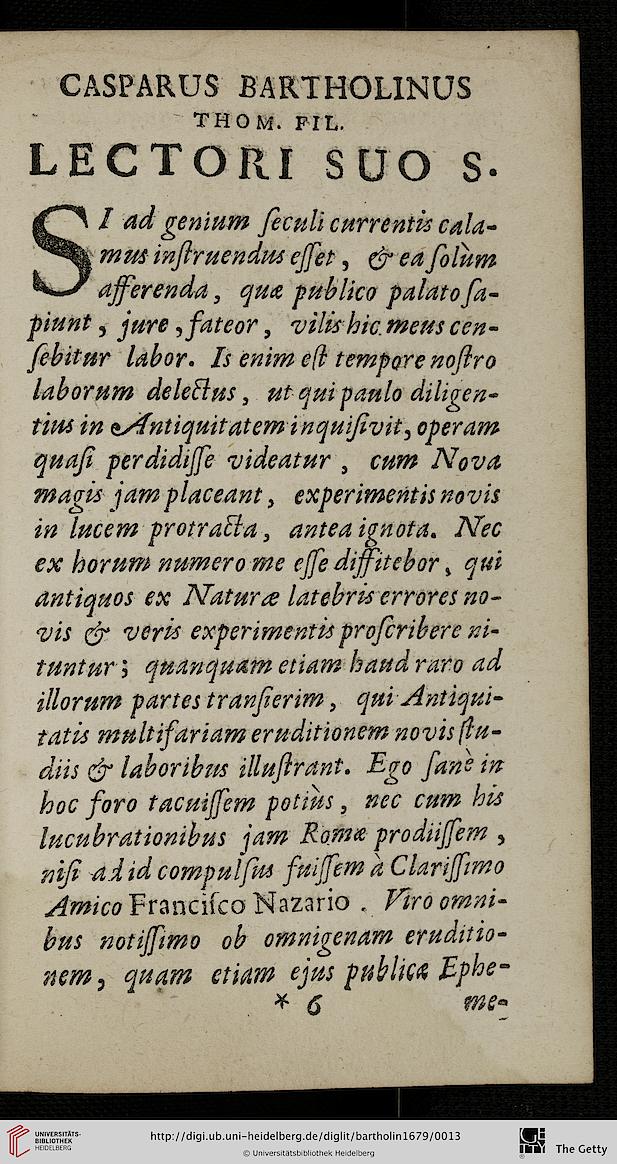 CASPARUS BARTHOLINUS
THOM. FIL.
LECTORI SUO S.
SI ad genium ſeculi currentis cala-
mus inſtruendus eſſet, & ea ſolùm
afferenda, quæ publico palato ſa-
piunt, jure, fateor, vilis hic. meus cen-
ſebitur labor. Is enim eſt tempore noſtro
laborum delectus, ut qui paulo diligen-
tius in Antiquitatem inquiſivit, operam
quaſi perdidiſſe videatur, cum Nova
magis jam placeant, experimentis novis
in lucem protracta, antea ignota. Nec
ex horum numero me eſſe diffitebor, qui
antiquos ex Naturæ latebris errores no-
vis & veris experimentis proſcribere ni-
tuntur; quanquam etiam haud raro ad
illorum partes tranſierim, qui Antiqui-
tatis multifariam eruditionem novis ſtu-
diis & laboribus illuſtrant. Ego ſanè in
hoc foro tacuiſſem potiùs, nec cum his
lucubrationibus jam Romæ prodiiſſem,
niſi ad id compulſus fuiſſem à Clariſſimo
Amico Franciſco Nazario. Viro omni-
bus notiſſimo ob omnigenam eruditio-
nem, quam etiam ejus publicæ Ephe-
* 6 me-
UNIVERSITÄTS-
BIBLIOTHEK
HEIDELBERG
http://digi.ub.uni-heidelberg.de/diglit/bartholin1679/0013
© Universitätsbibliothek Heidelberg
The Getty